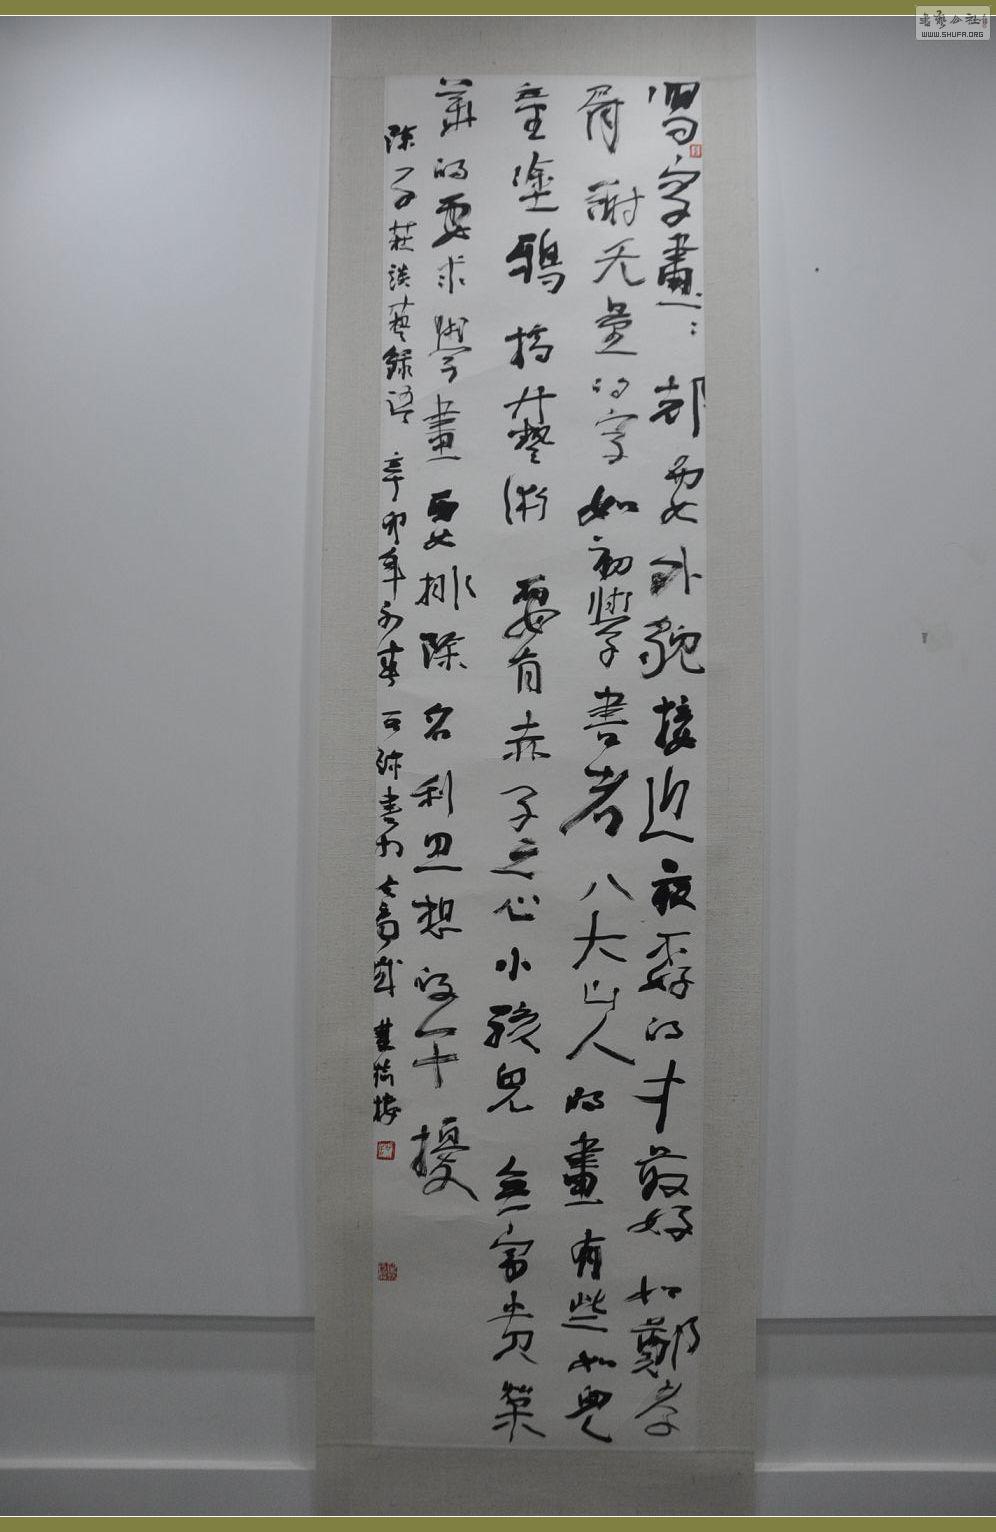 寫字畫：都要外貌接近最不好的才最好如鄭孝
胥謝无量的字如初學書者八大山人的畫有些如兒
童塗鴉搞藝術要有赤子之心小孩兒無富貴榮
華的要求學畫要排除名利思想的干擾
陳子莊談藝錄語辛卯年
書藝公社
WWW.SHUFA.ORG